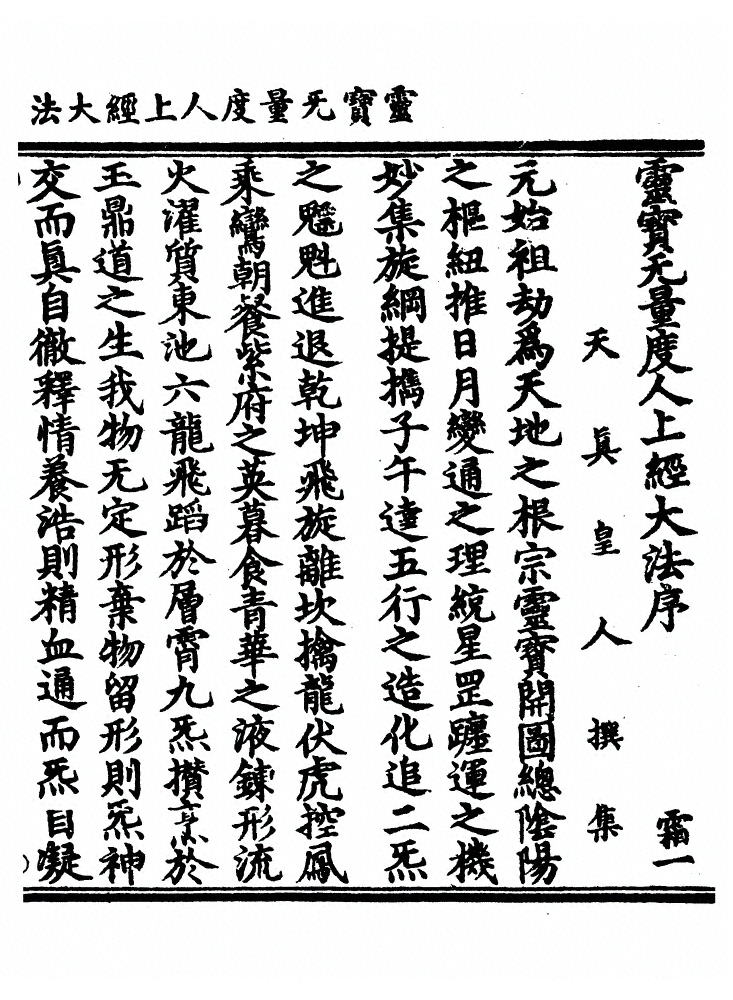 靈寶无量度人上經大法
靈寶无量度人上經大法序 霜一
天眞皇人撰集
元始祖劫爲天地之根宗靈寶開圖總陰陽
之樞紐推日月變通之理統星罡躔運之機
妙集旋綱提擕子午達五行之造化追二炁
之魒魁進退乾坤飛旋離坎擒龍伏虎控鳳
乘鸞朝餐紫府之英暮食青華之液鍊形流
火濯質東池六龍飛蹈於層霄九炁攢於
玉鼎道之生我物无定形棄物留形則炁神
交而眞自徹釋情養浩則精血通而炁自凝